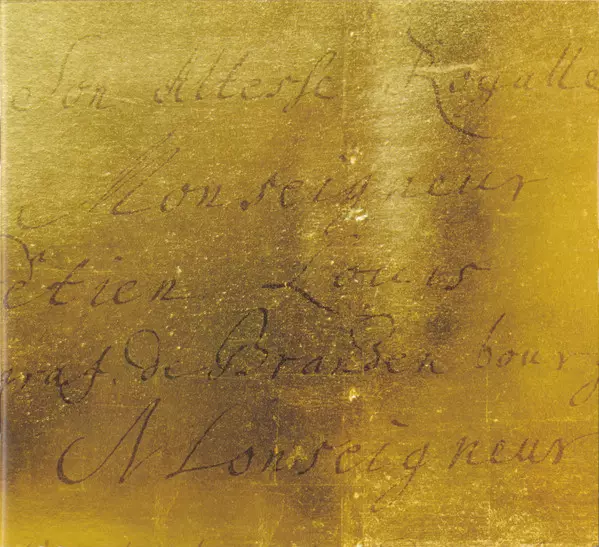 Son Altesse Royalle
Monseigneur
étien Louis
graf. de Brandenbourg
Monseigneur